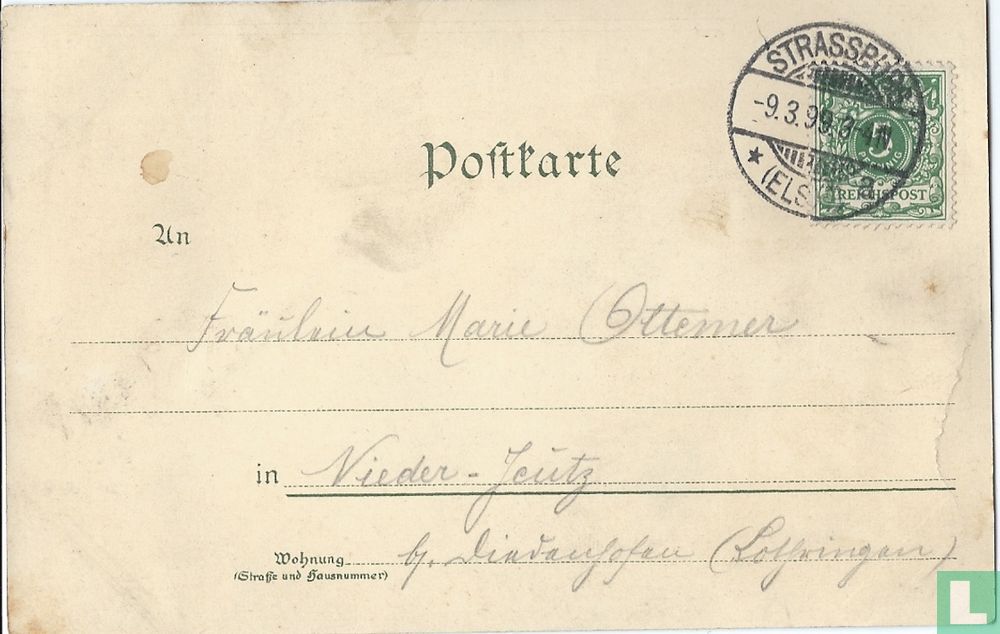 Postkarte
STRASSBURG
-9.3.99.3-4N.
* (ELS.) *
5
REICHSPOST
An
Fräulein Marie Ottemer
in Nieder-Jeutz
Wohnung b/. Diedenhofen (Lothringen)
(Straße und Hausnummer)
L